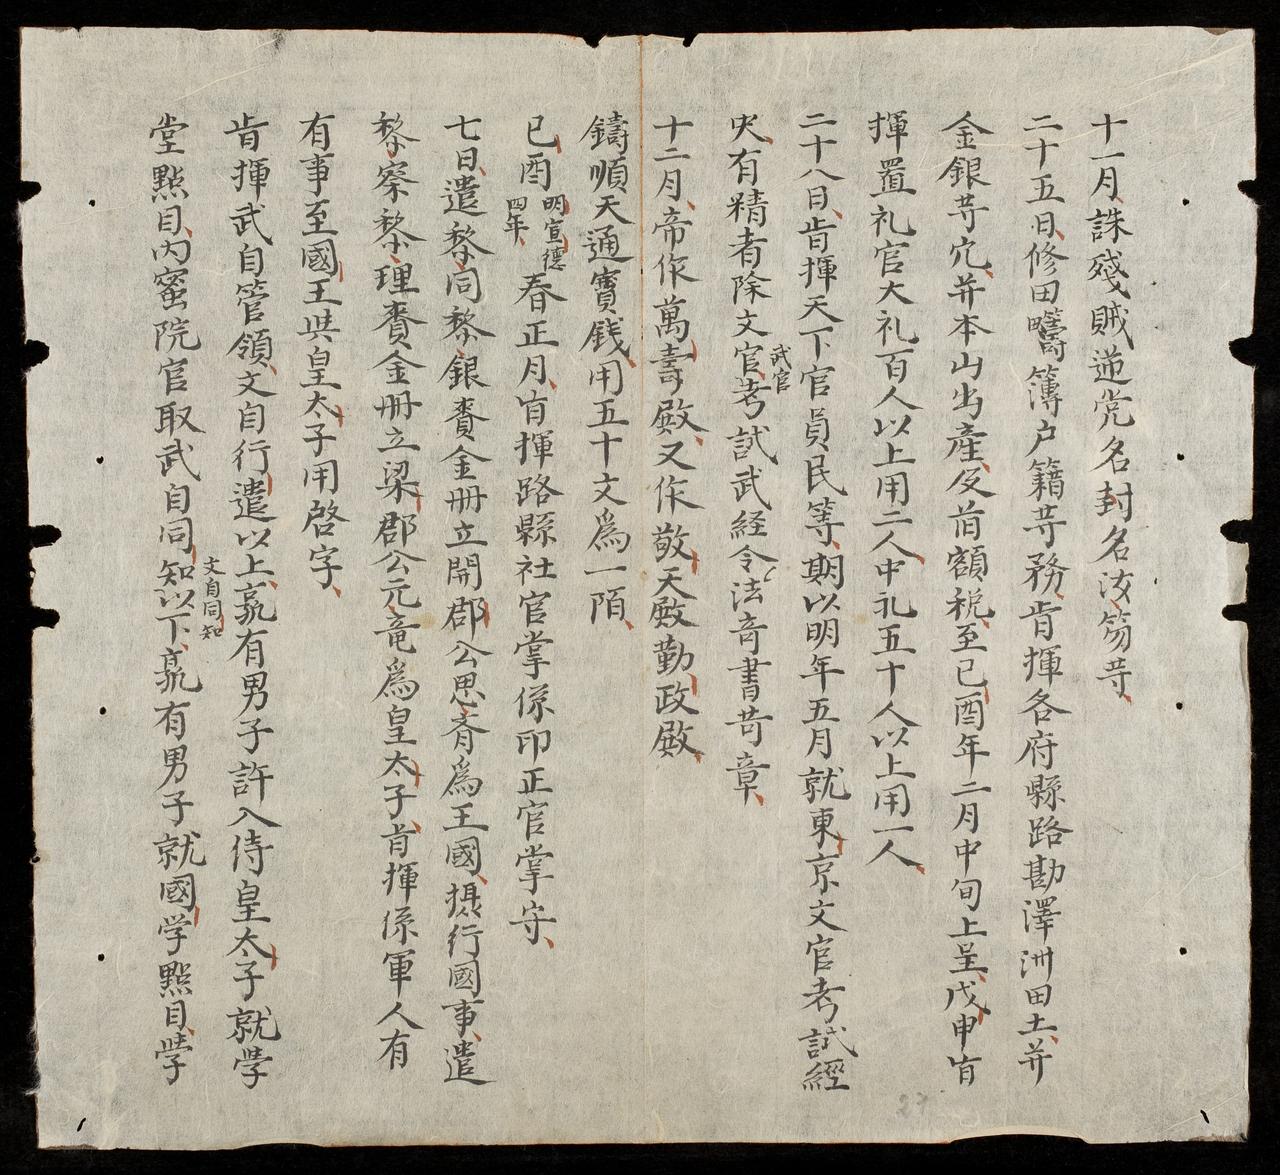 十一月誅殘賊逆党名封名汝笏䓁
二十五日修田疇簿户籍䓁務肯揮各府縣路勘澤洲田土并
金銀䓁穴并本山出產及前額税至己酉年二月中旬上呈戊申肯
揮置礼官大礼百人以上用二人中礼五十人以上用一人
二十八日肯揮天下官員民等期以明年五月就東京文官考試經
史有精者除文官武官考試武経令法竒書䓁章
十二月帝作萬壽殿又作敬天殿勤政殿
鑄順天通寶钱用五十文爲一陌
已酉明宣德四年春正月肯揮路縣社官掌係印正官掌守
七日遣黎同黎銀賫金册立開郡公思齊爲王國摄行國事遣
黎察黎理賫金册立梁郡公元竜爲皇太子肯揮係軍人有
有事至國王㒷皇太子用啓字
肯揮武自管領文自行遣以上孰有男子許入侍皇太子就學
堂點目内蜜院官取武自同知文自同知以下孰有男子就國学點目學